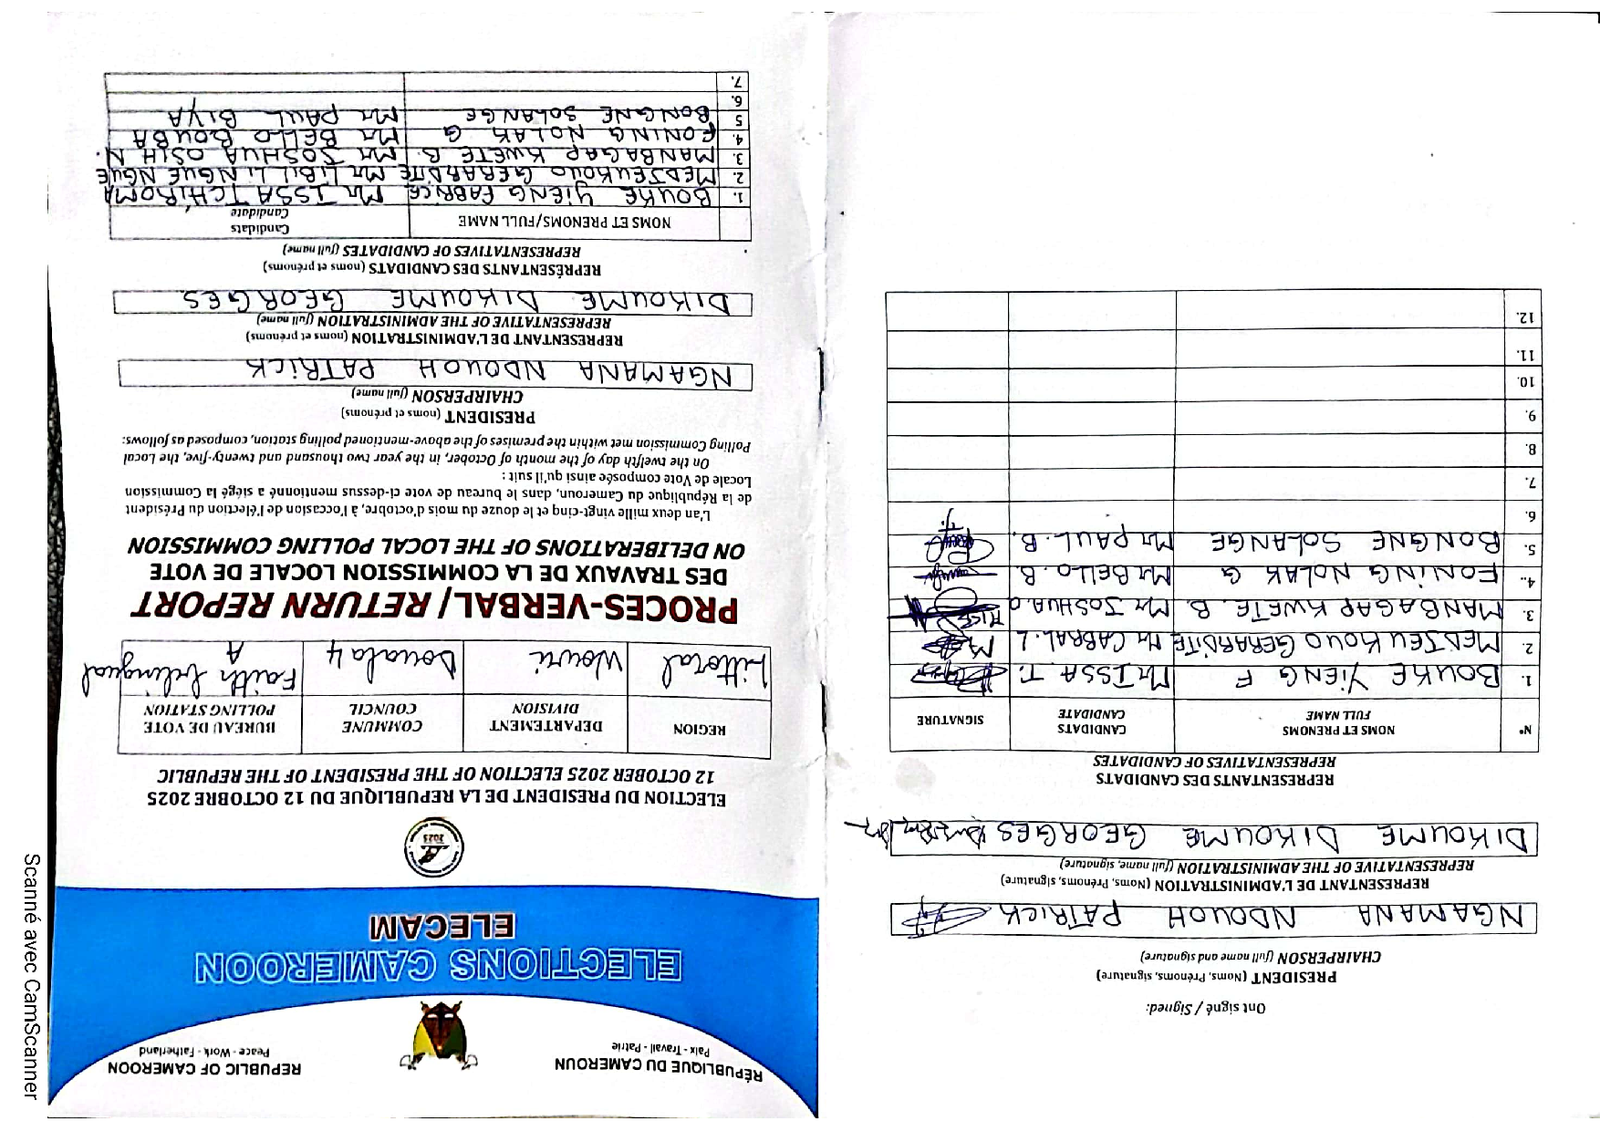 RÉPUBLIQUE DU CAMEROUN
Paix - Travail - Patrie
REPUBLIC OF CAMEROON
Peace - Work - Fatherland
ELECTIONS CAMEROON
ELECAM
2025
ELECTION DU PRESIDENT DE LA REPUBLIQUE DU 12 OCTOBRE 2025
12 OCTOBER 2025 ELECTION OF THE PRESIDENT OF THE REPUBLIC
REGION DEPARTEMENT COMMUNE BUREAU DE VOTE
DIVISION COUNCIL POLLING STATION
Littoral Wouri Douala 4 Faith bilingual
A
PROCES-VERBAL / RETURN REPORT
DES TRAVAUX DE LA COMMISSION LOCALE DE VOTE
ON DELIBERATIONS OF THE LOCAL POLLING COMMISSION
L'an deux mille vingt-cinq et le douze du mois d'octobre, à l'occasion de l'élection du Président
de la République du Cameroun, dans le bureau de vote ci-dessus mentionné a siégé la Commission
Locale de Vote composée ainsi qu'il suit :
On the twelfth day of the month of October, in the year two thousand and twenty-five, the Local
Polling Commission met within the premises of the above-mentioned polling station, composed as follows:
PRESIDENT (noms et prénoms)
CHAIRPERSON (full name)
NGAMANA NDOUOH PATRICK
REPRESENTANT DE L'ADMINISTRATION (noms et prénoms)
REPRESENTATIVE OF THE ADMINISTRATION (full name)
DIKOUME DIKOUME GEORGES
REPRÉSENTANTS DES CANDIDATS (noms et prénoms)
REPRESENTATIVES OF CANDIDATES (full name)
NOMS ET PRENOMS/FULL NAME Candidats
Candidate
1. BOUKE YIENG FABRICE Mr ISSA TCHIROMA
2. MEDJEUKOUO GERARDITE Mr LIBII LI NGUE NGUE
3. MANBAGAP KWETE B. Mr JOSHUA OSIH N.
4. FONING NOLAK G Mr BELLO BOUBA
5 BONGNE SOLANGE Mr PAUL BIYA
6.
7.
Ont signé / Signed:
PRESIDENT (Noms, Prénoms, signature)
CHAIRPERSON (full name and signature)
NGAMANA NDOUOH PATRICK
REPRESENTANT DE L'ADMINISTRATION (Noms, Prénoms, signature)
REPRESENTATIVE OF THE ADMINISTRATION (full name, signature)
DIKOUME DIKOUME GEORGES
REPRESENTANTS DES CANDIDATS
REPRESENTATIVES OF CANDIDATES
N° NOMS ET PRENOMS CANDIDATS SIGNATURE
FULL NAME CANDIDATE
1. BOUKE YIENG F Mr ISSA. T.
2. MEDJEUKOUO GERARDITE Mr CABRAL. L
3. MANBAGAP KWETE. B Mr JOSHUA. O
4. FONING NOLAK G Mr BELLO. B.
5. BONGNE SOLANGE Mr PAUL. B.
6.
7.
8.
9.
10.
11.
12.
Scanné avec CamScanner